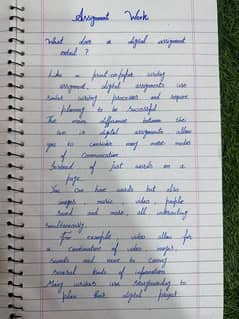 Assignment Work
What does a digital assignment
entail ?
Like a print-on-paper writing
assignment, digital assignments use
similar writing processes and require
planning to be successful.
The main difference between the
two is digital assignments allow
you to consider many more modes
of Communication
Instead of just words on a
page.
You can have words but also
images, music, video, people
Sound and more, all interacting
simultaneously.
For example, video allow for
a Combination of video, images,
Sounds and more to Convey
several kinds of information.
Many writers use Storyboarding to
plan their digital project